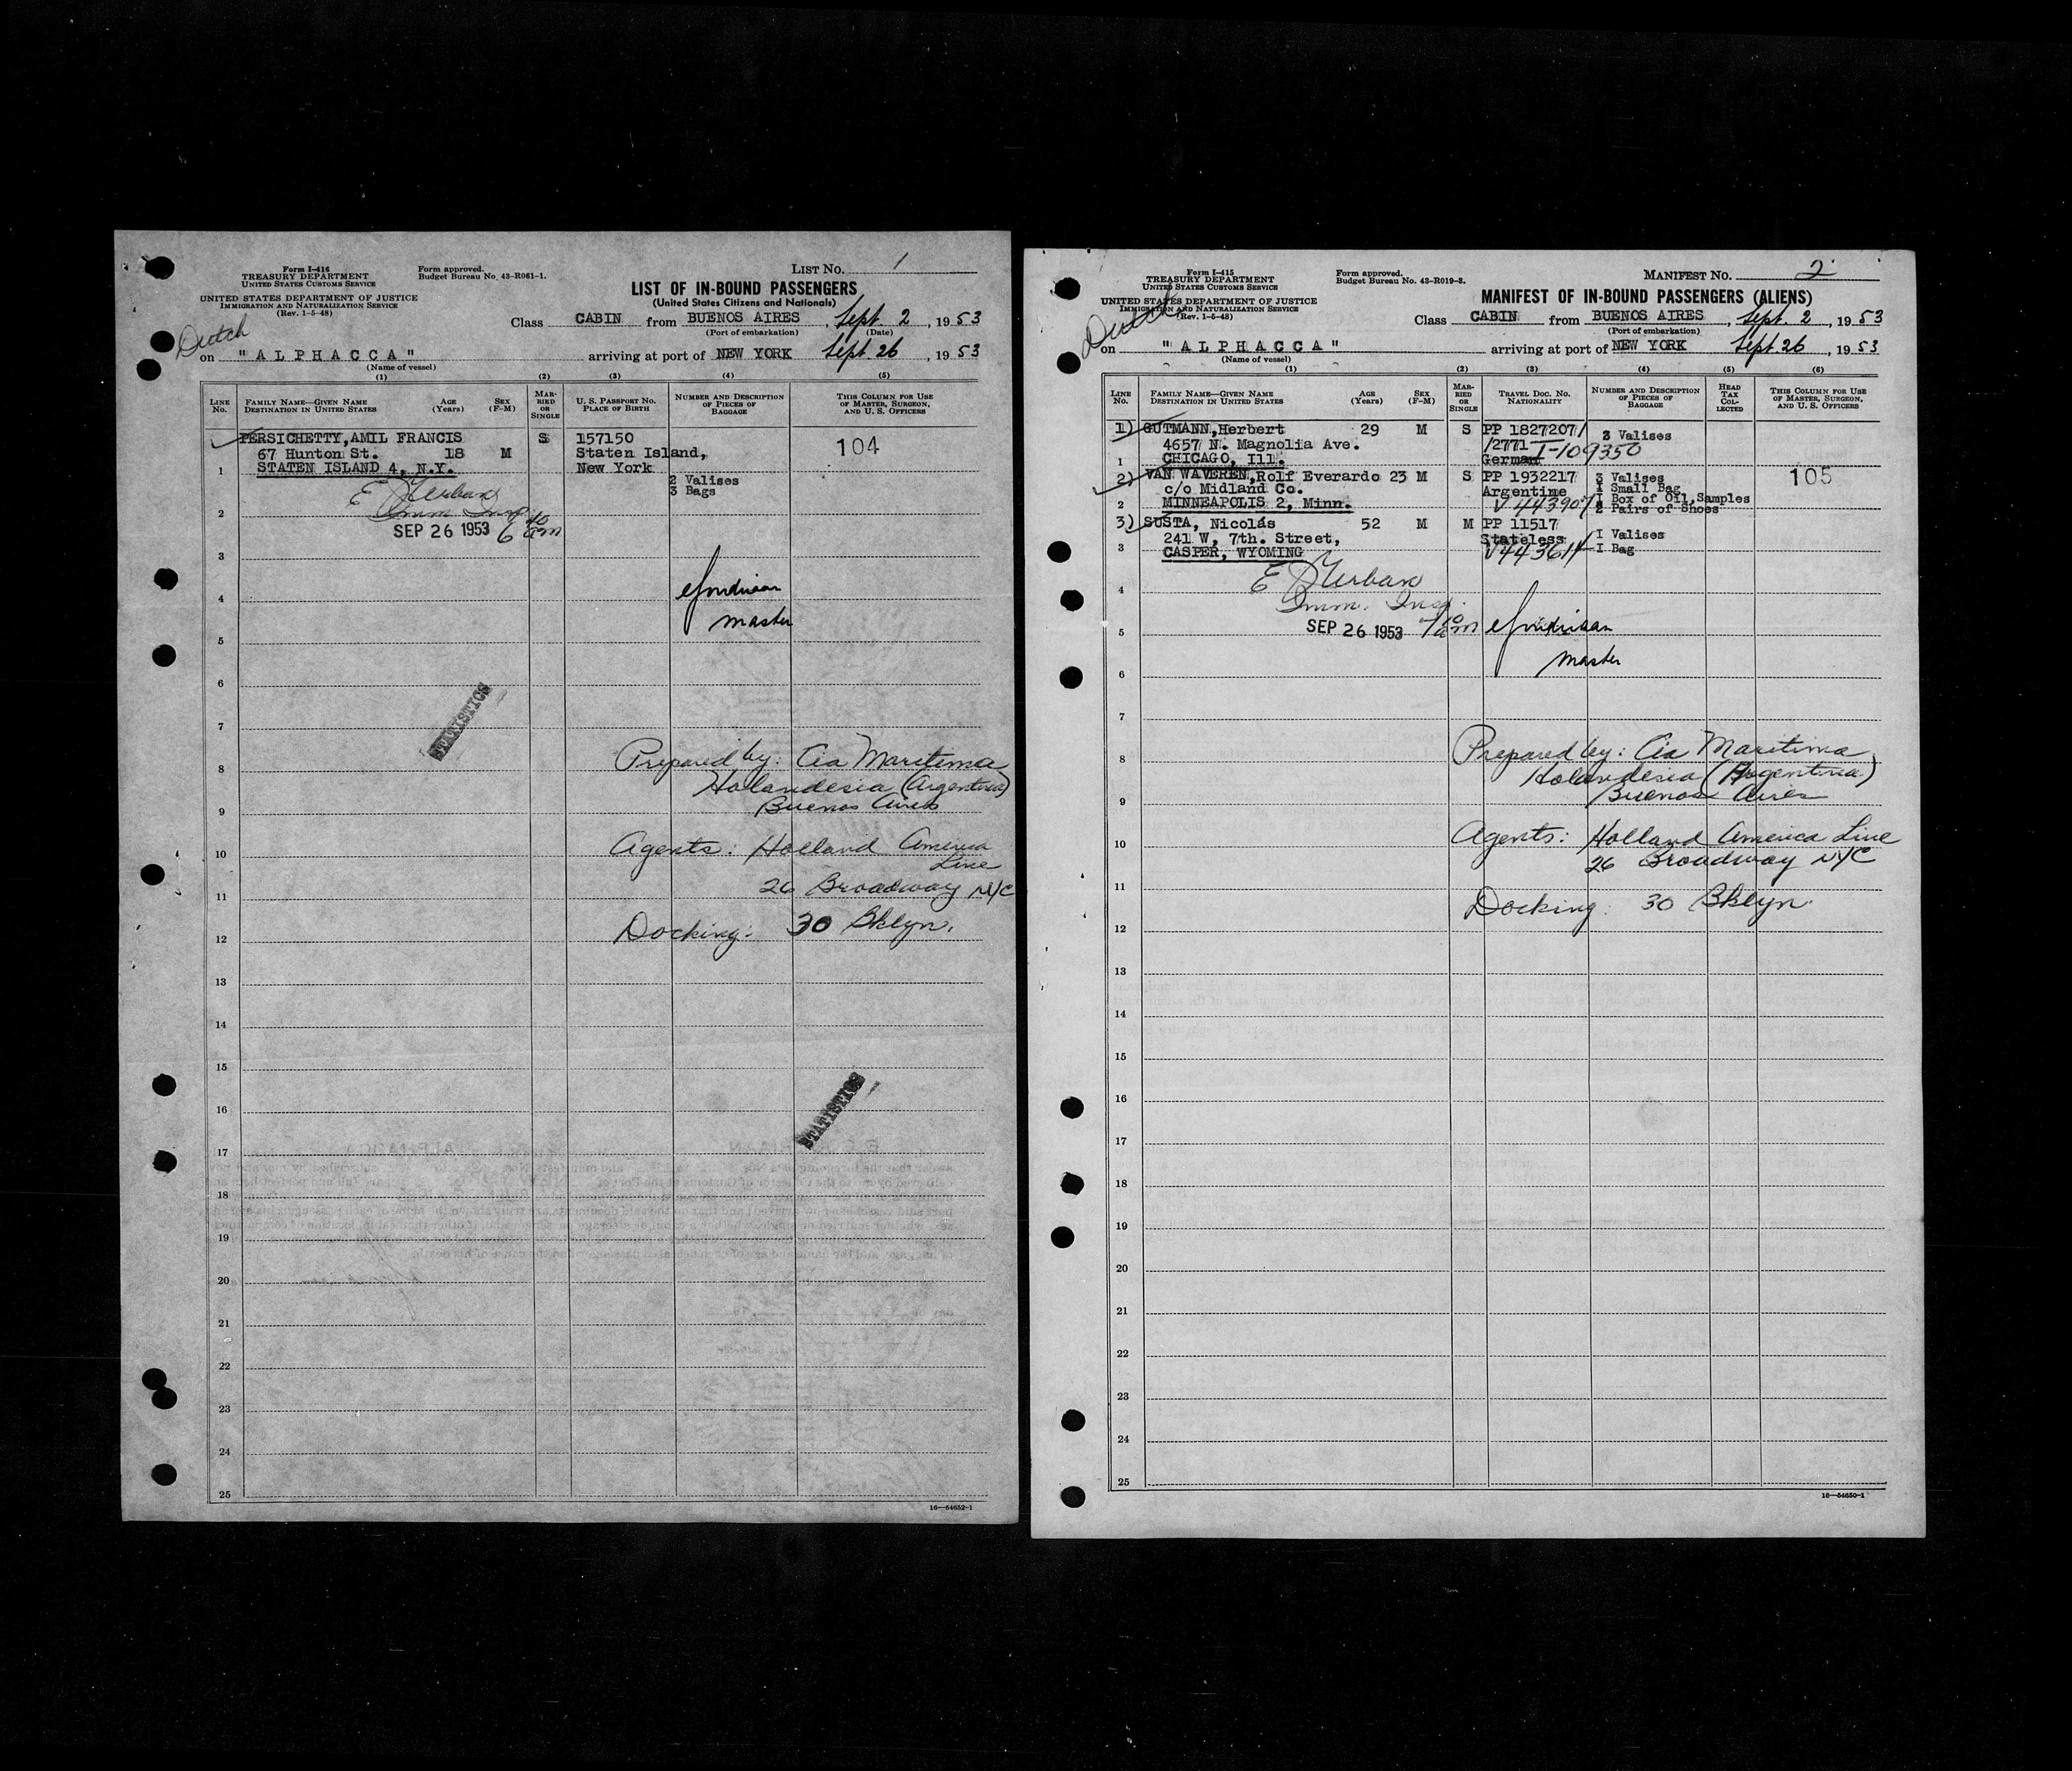 Form I-416
TREASURY DEPARTMENT
UNITED STATES CUSTOMS SERVICE
UNITED STATES DEPARTMENT OF JUSTICE
IMMIGRATION AND NATURALIZATION SERVICE
(Rev. 1-5-48)
Form approved.
Budget Bureau No. 43-R061-1.
LIST NO. 1
LIST OF IN-BOUND PASSENGERS
(United States Citizens and Nationals)
Dutch
Class CABIN from BUENOS AIRES, Sept. 2, 1953
(Port of embarkation) (Date)
on "ALPHACCA" arriving at port of NEW YORK Sept. 26, 1953
(Name of vessel)
(1) (2) (3) (4) (5)
LINE NO.
FAMILY NAME—GIVEN NAME
DESTINATION IN UNITED STATES
AGE (Years)
SEX (F-M)
MARRIED OR SINGLE
U. S. PASSPORT NO.
PLACE OF BIRTH
NUMBER AND DESCRIPTION OF PIECES OF BAGGAGE
THIS COLUMN FOR USE OF MASTER, SURGEON, AND U. S. OFFICERS
PERSICHETTY, AMIL FRANCIS S 157150 104
67 Hunton St. 18 M Staten Island,
1 STATEN ISLAND 4, N.Y. New York
2 Valises
3 Bags
E Urban
2 Imm Insp
SEP 26 1953 6 40 am
3
4
master
5
6
STATISTICS
7
Prepared by: Cia Maritima
8 Holandesia (Argentina)
Buenos Aires
9
10 Agents: Holland America
Line
11 26 Broadway NYC
12 Docking: 30 Bklyn.
13
14
15
STATISTICS
16
17
18
19
20
21
22
23
24
25
16—54652-1
Form I-415
TREASURY DEPARTMENT
UNITED STATES CUSTOMS SERVICE
UNITED STATES DEPARTMENT OF JUSTICE
IMMIGRATION AND NATURALIZATION SERVICE
(Rev. 1-5-48)
Form approved.
Budget Bureau No. 43-R019-3.
MANIFEST NO. 2
MANIFEST OF IN-BOUND PASSENGERS (ALIENS)
Dutch
Class CABIN from BUENOS AIRES, Sept. 2, 1953
(Port of embarkation)
on "ALPHACCA" arriving at port of NEW YORK Sept. 26, 1953
(Name of vessel)
(1) (2) (3) (4) (5) (6)
LINE NO.
FAMILY NAME—GIVEN NAME
DESTINATION IN UNITED STATES
AGE (Years)
SEX (F-M)
MARRIED OR SINGLE
TRAVEL DOC. NO.
NATIONALITY
NUMBER AND DESCRIPTION OF PIECES OF BAGGAGE
HEAD TAX COLLECTED
THIS COLUMN FOR USE OF MASTER, SURGEON, AND U. S. OFFICERS
1) GUTMANN, Herbert 29 M S PP 1827207/
4657 N. Magnolia Ave. /2771 I-109350 Valises
1 CHICAGO, Ill. German
2) VAN WAVEREN, Rolf Everardo 23 M S PP 1932217 3 Valises 105
c/o Midland Co. Argentine I Small Bag
2 MINNEAPOLIS 2, Minn. V 443907 I Box of Oil Samples
2 Pairs of Shoes
3) SUSTA, Nicolás 52 M M PP 11517
241 W, 7th. Street, Stateless I Valises
3 CASPER, WYOMING V443614 I Bag
E Urban
4 Imm. Insp.
5 SEP 26 1953 am
master
6
7
Prepared by: Cia Maritima
8 Holandesia (Argentina)
Buenos Aires
9
10 Agents: Holland America Line
26 Broadway NYC
11 Docking: 30 Bklyn.
12
13
14
15
16
17
18
19
20
21
22
23
24
25
16—54650-1